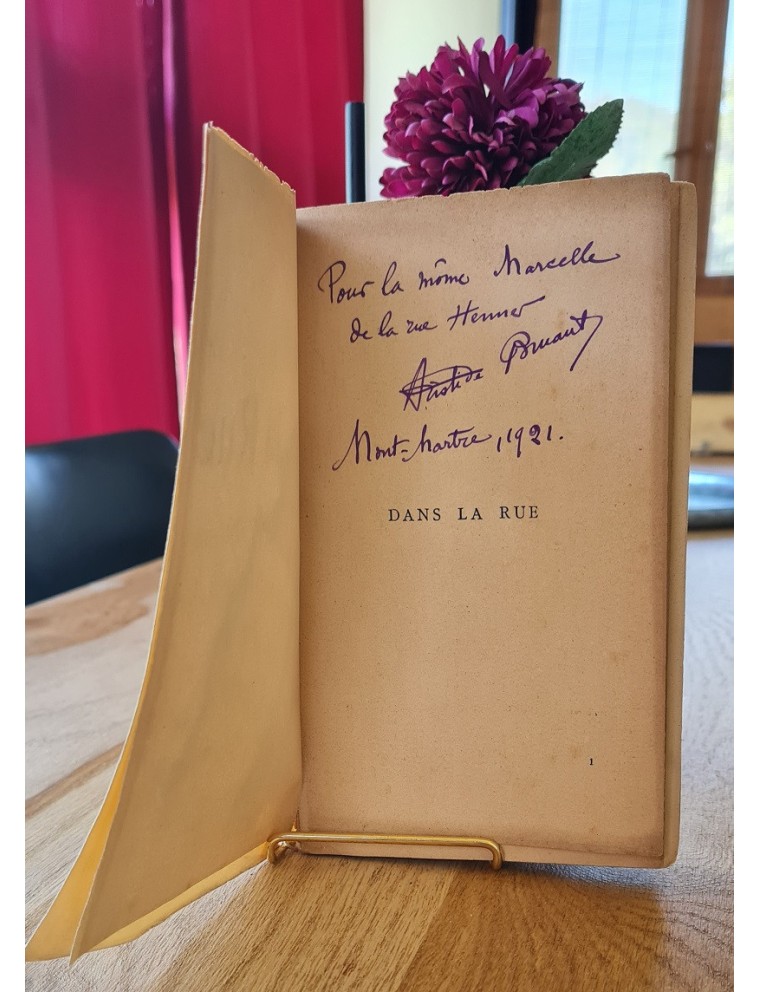 Pour la môme Marcelle
de la rue Henner
Aristide Bruant
Mont-Martre, 1921.
DANS LA RUE
1